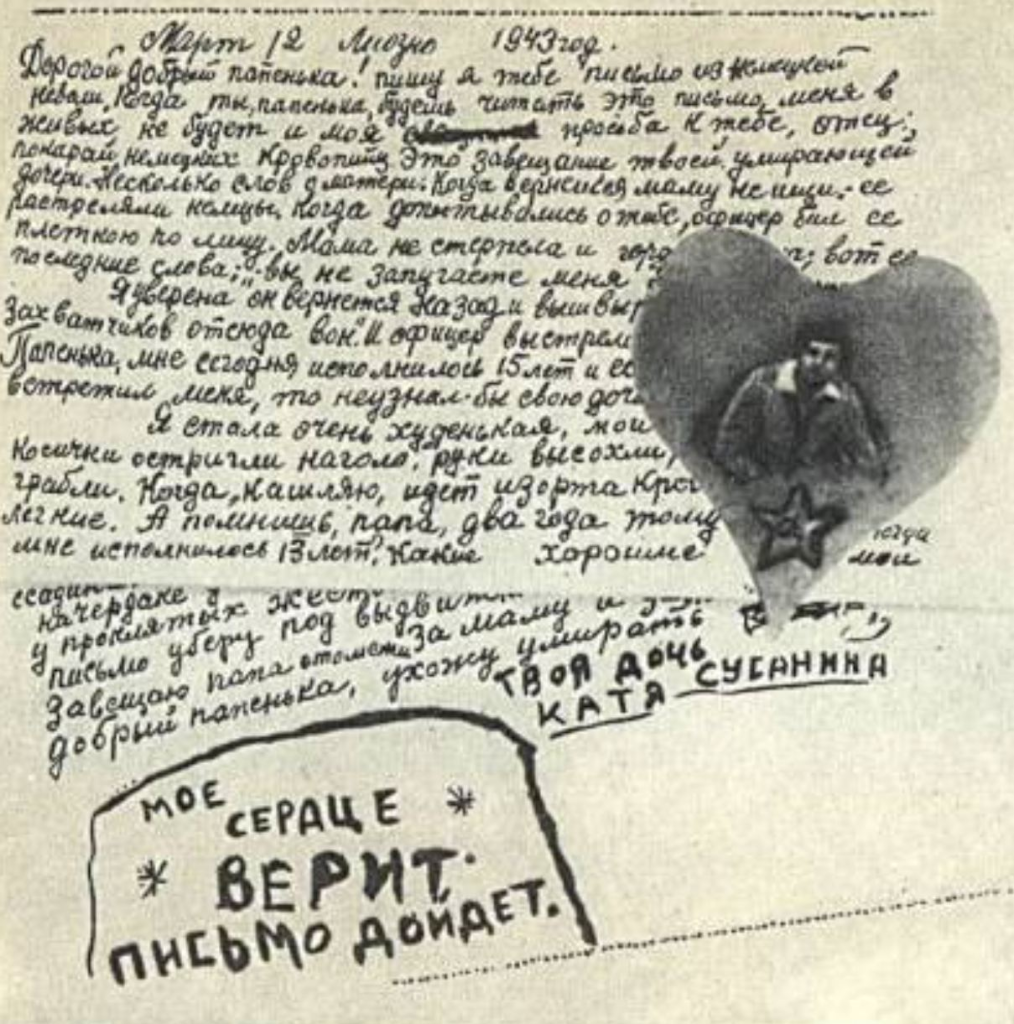 Март 12 Лиозно 1943 год.
Дорогой добрый папенька! пишу я тебе письмо из немецкой
неволи. Когда ты, папенька, будешь читать это письмо, меня в
живых не будет и моя просьба к тебе, отец:
покарай немецких кровопийц. Это завещание твоей умирающей
дочери. Несколько слов о матери. Когда вернешься, маму не ищи. ее
растреляли немцы. Когда допытывались о тебе, офицер бил ее
плеткою по лицу. Мама не стерпела и вот ее
последние слова; "вы не запугаете меня
Я уверена он вернется назад и вышвы
захватчиков отсюда вон". И офицер выстрели
Папенька, мне сегодня исполнилось 15 лет и ес
встретил меня, то неузнал-бы свою доч
Я стала очень худенькая, мои
косички остригли наголо, руки высохли,
грабли. Когда кашляю, идет изорта кро
легкие. А помнишь, папа, два года тому когда
мне исполнилось 13 лет? Какие хорошие мои
на чердаке
у проклятых жест
письмо уберу под
Завещаю папа отомсти за маму и
добрый папенька, ухожу умирать
ТВОЯ ДОЧЬ
КАТЯ СУСАНИНА
МОЕ
СЕРДЦЕ
ВЕРИТ.
ПИСЬМО ДОЙДЕТ.